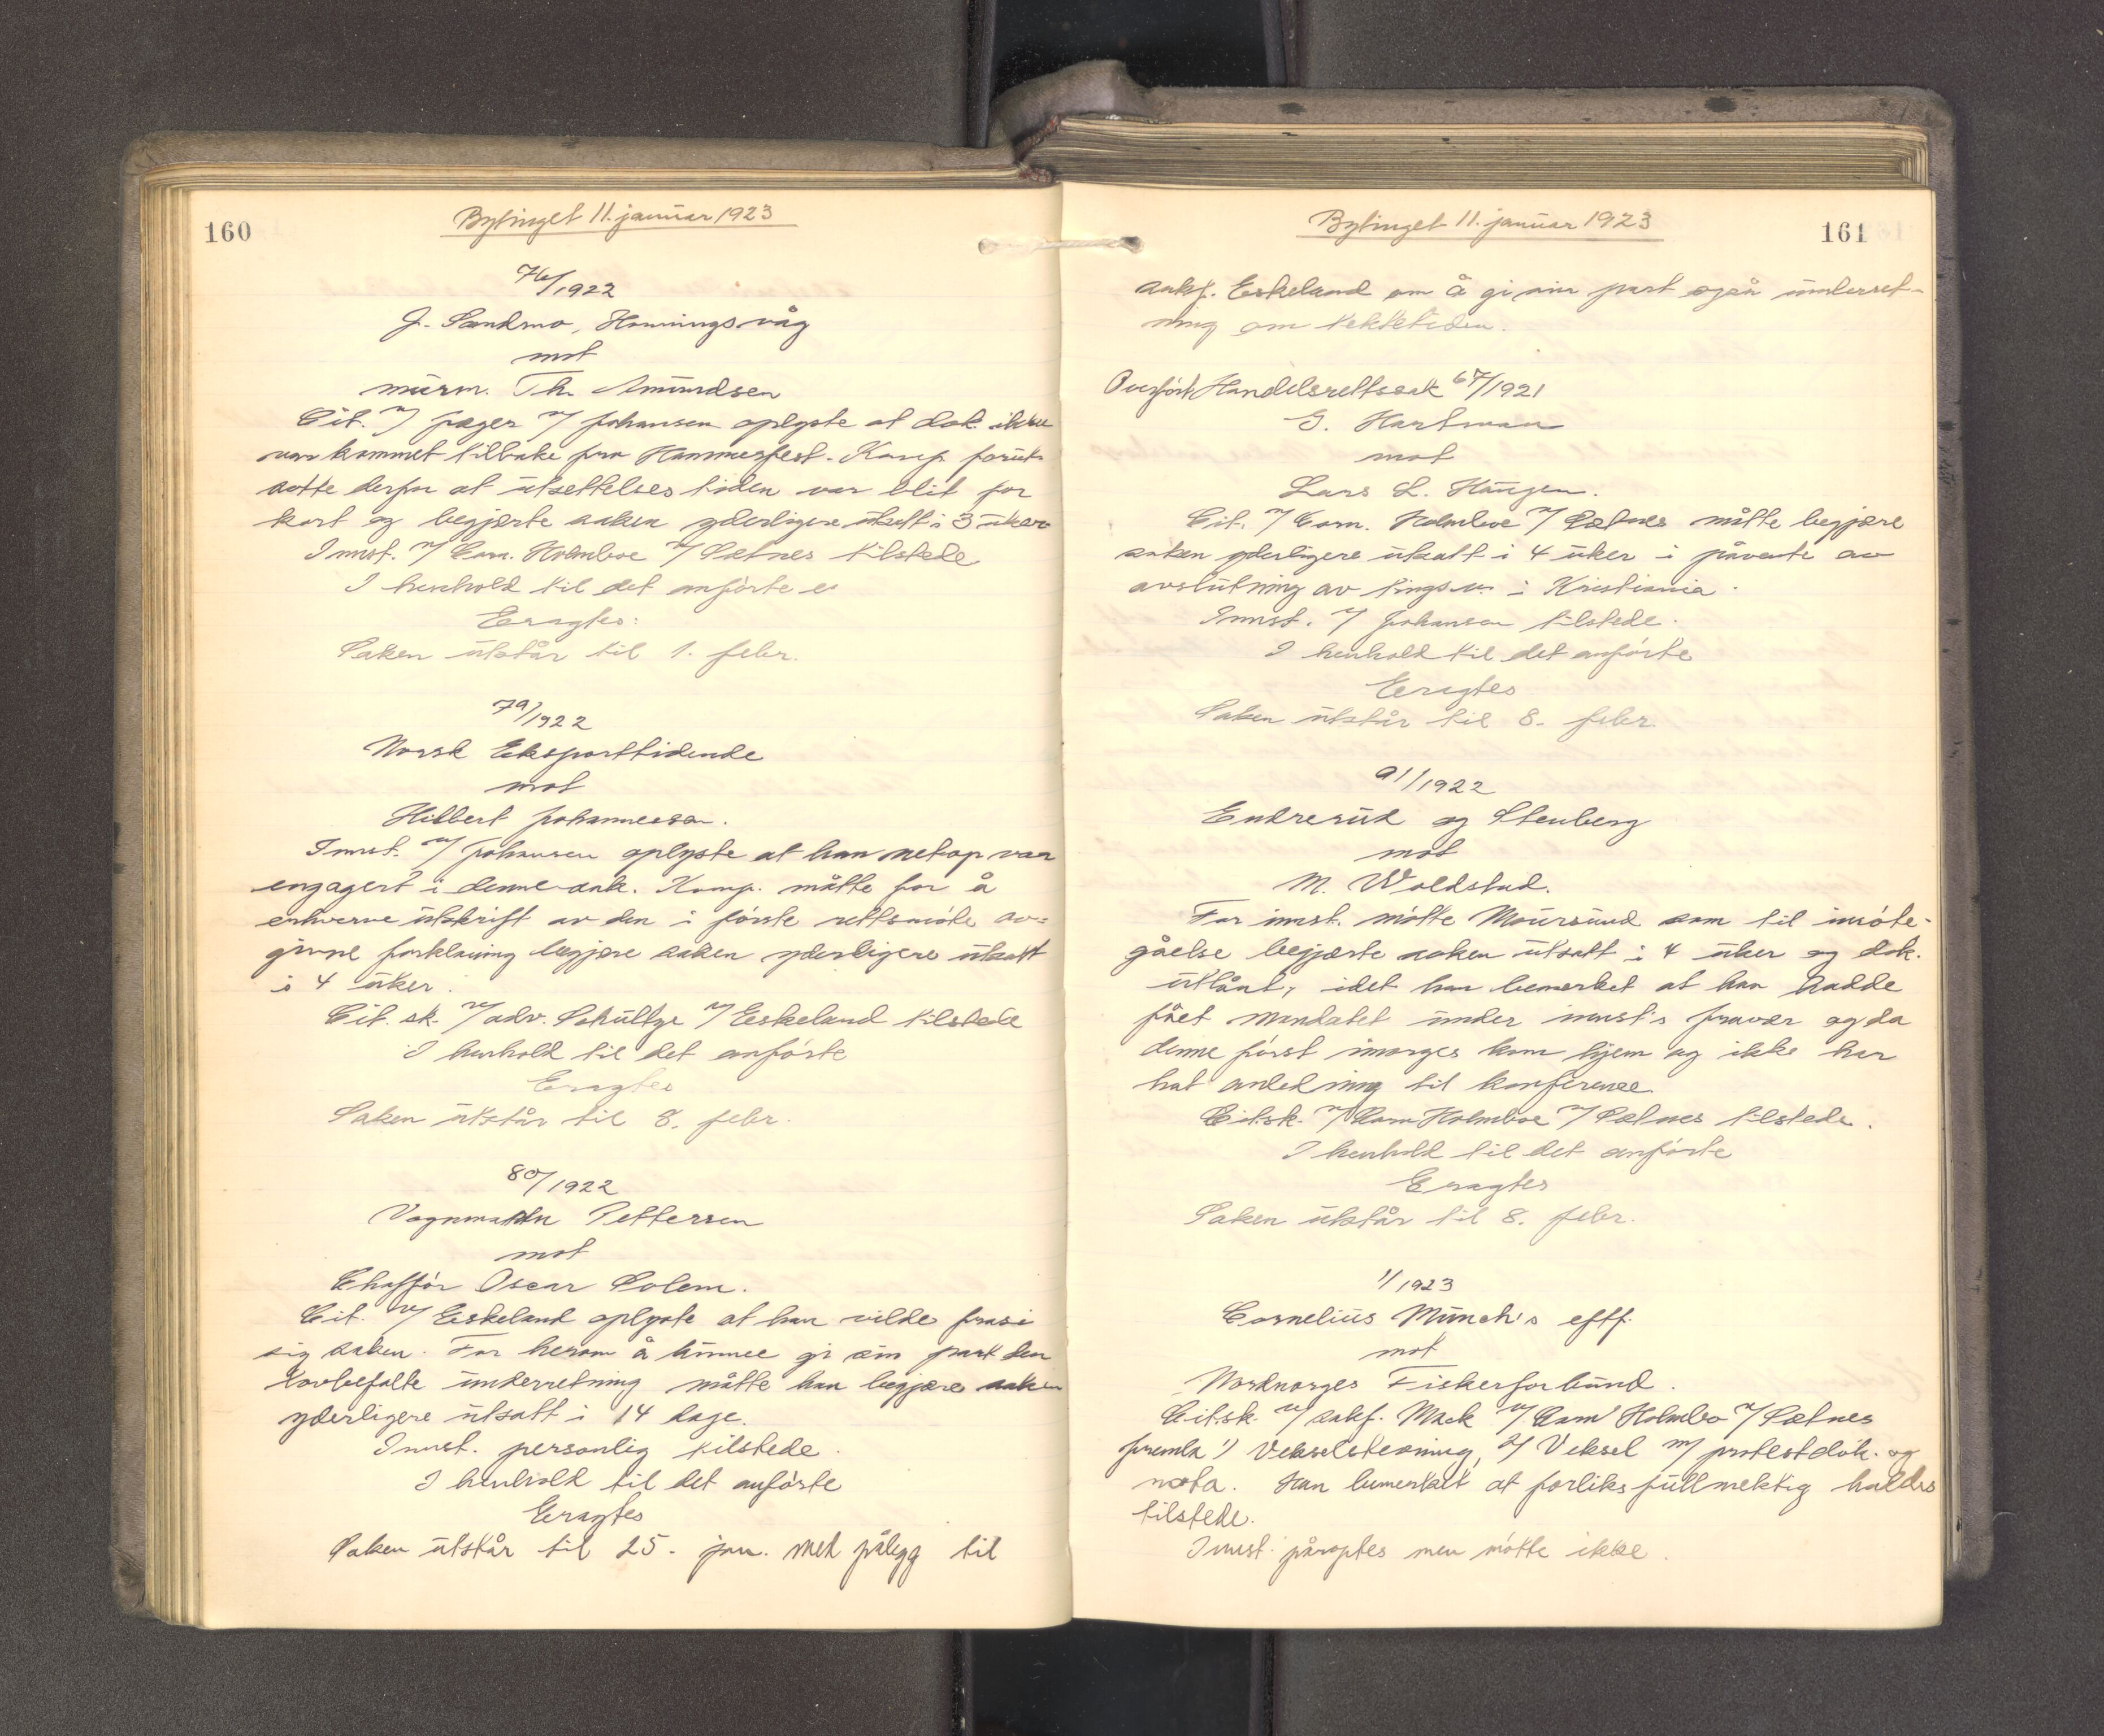 160
Bytinget 11. januar 1923
76/1922
J. Sandmo, Honningsvåg
mot
murm. Th. Amundsen
Cit. v/ Jæger v/ Johansen oplyste at dok. ikke
var kommet tilbake fra Hammerfest. Komp. forut-
satte derfor at utsettelsestiden var blit for
kort og begjærte saken yderligere utsatt i 3 uker
Innst. v/ Corn. Holmboe v/ Sætnes tilstede
I henhold til det anførte er
Eragtes:
Saken utstår til 1. febr.
79/1922
Norsk Eksporttidende
mot
Hilbert Johannessen.
Innst. v/ Johansen oplyste at han netop var
engagert i denne sak. Komp. måtte for å
erhverve utskrift av den i første rettsmøte av-
givne forklaring begjære saken yderligere utsatt
i 4 uker.
Cit. sk. v/ adv. Schultze v/ Eskeland tilstede
I henhold til det anførte
Eragtes
Saken utstår til 8. febr.
80/1922
Vognmann Pettersen
mot
Chaffør Oscar Solem.
Cit. v/ Eskeland oplyste at han vilde frasi
sig saken. For herom å kunne gi sin part den
lovbefalte underretning måtte han begjære saken
yderligere utsatt i 14 dage.
Innst. personlig tilstede.
I henhold til det anførte
Eragtes
Saken utstår til 25. jan. med pålegg til
161
Bytinget 11. januar 1923
sakf. Eskeland om å gi sin part også underret-
ning om rettstiden.
Overført Handelsrettssak 67/1921
G. Hartman
mot
Lars L. Haugen.
Cit. v/ Corn. Holmboe v/ Sætnes måtte begjære
saken yderligere utsatt i 4 uker i påvente av
avslutning av tingsv. i Kristiania.
Innst. v/ Johansen tilstede.
I henhold til det anførte
Eragtes
Saken utstår til 8. febr.
91/1922
Endrerud og Stenberg
mot
M. Woldstad.
For innst. møtte Moursund som til imøte-
gåelse begjærte saken utsatt i 4 uker og dok.
utlånt, idet han bemerket at han hadde
fået mandatet under innst's fravær og da
denne først imorges kom hjem og ikke har
hat anledning til konferanse.
Cit.sk. v/ Corn Holmboe v/ Sætnes tilstede.
I henhold til det anførte
Eragtes
Saken utstår til 8. febr.
1/1923
Cornelius Münch's eftf.
mot
Nordnorges Fiskerforbund.
Cit.sk. v/ sakf. Mack v/ Corn Holmboe v/ Sætnes
fremla 1) Vekselstevning, 2/ Veksel m/ protestdok. og
nota. Han bemerket at forliksfullmektig holdes
tilstede.
Innst. påroptes men møtte ikke.